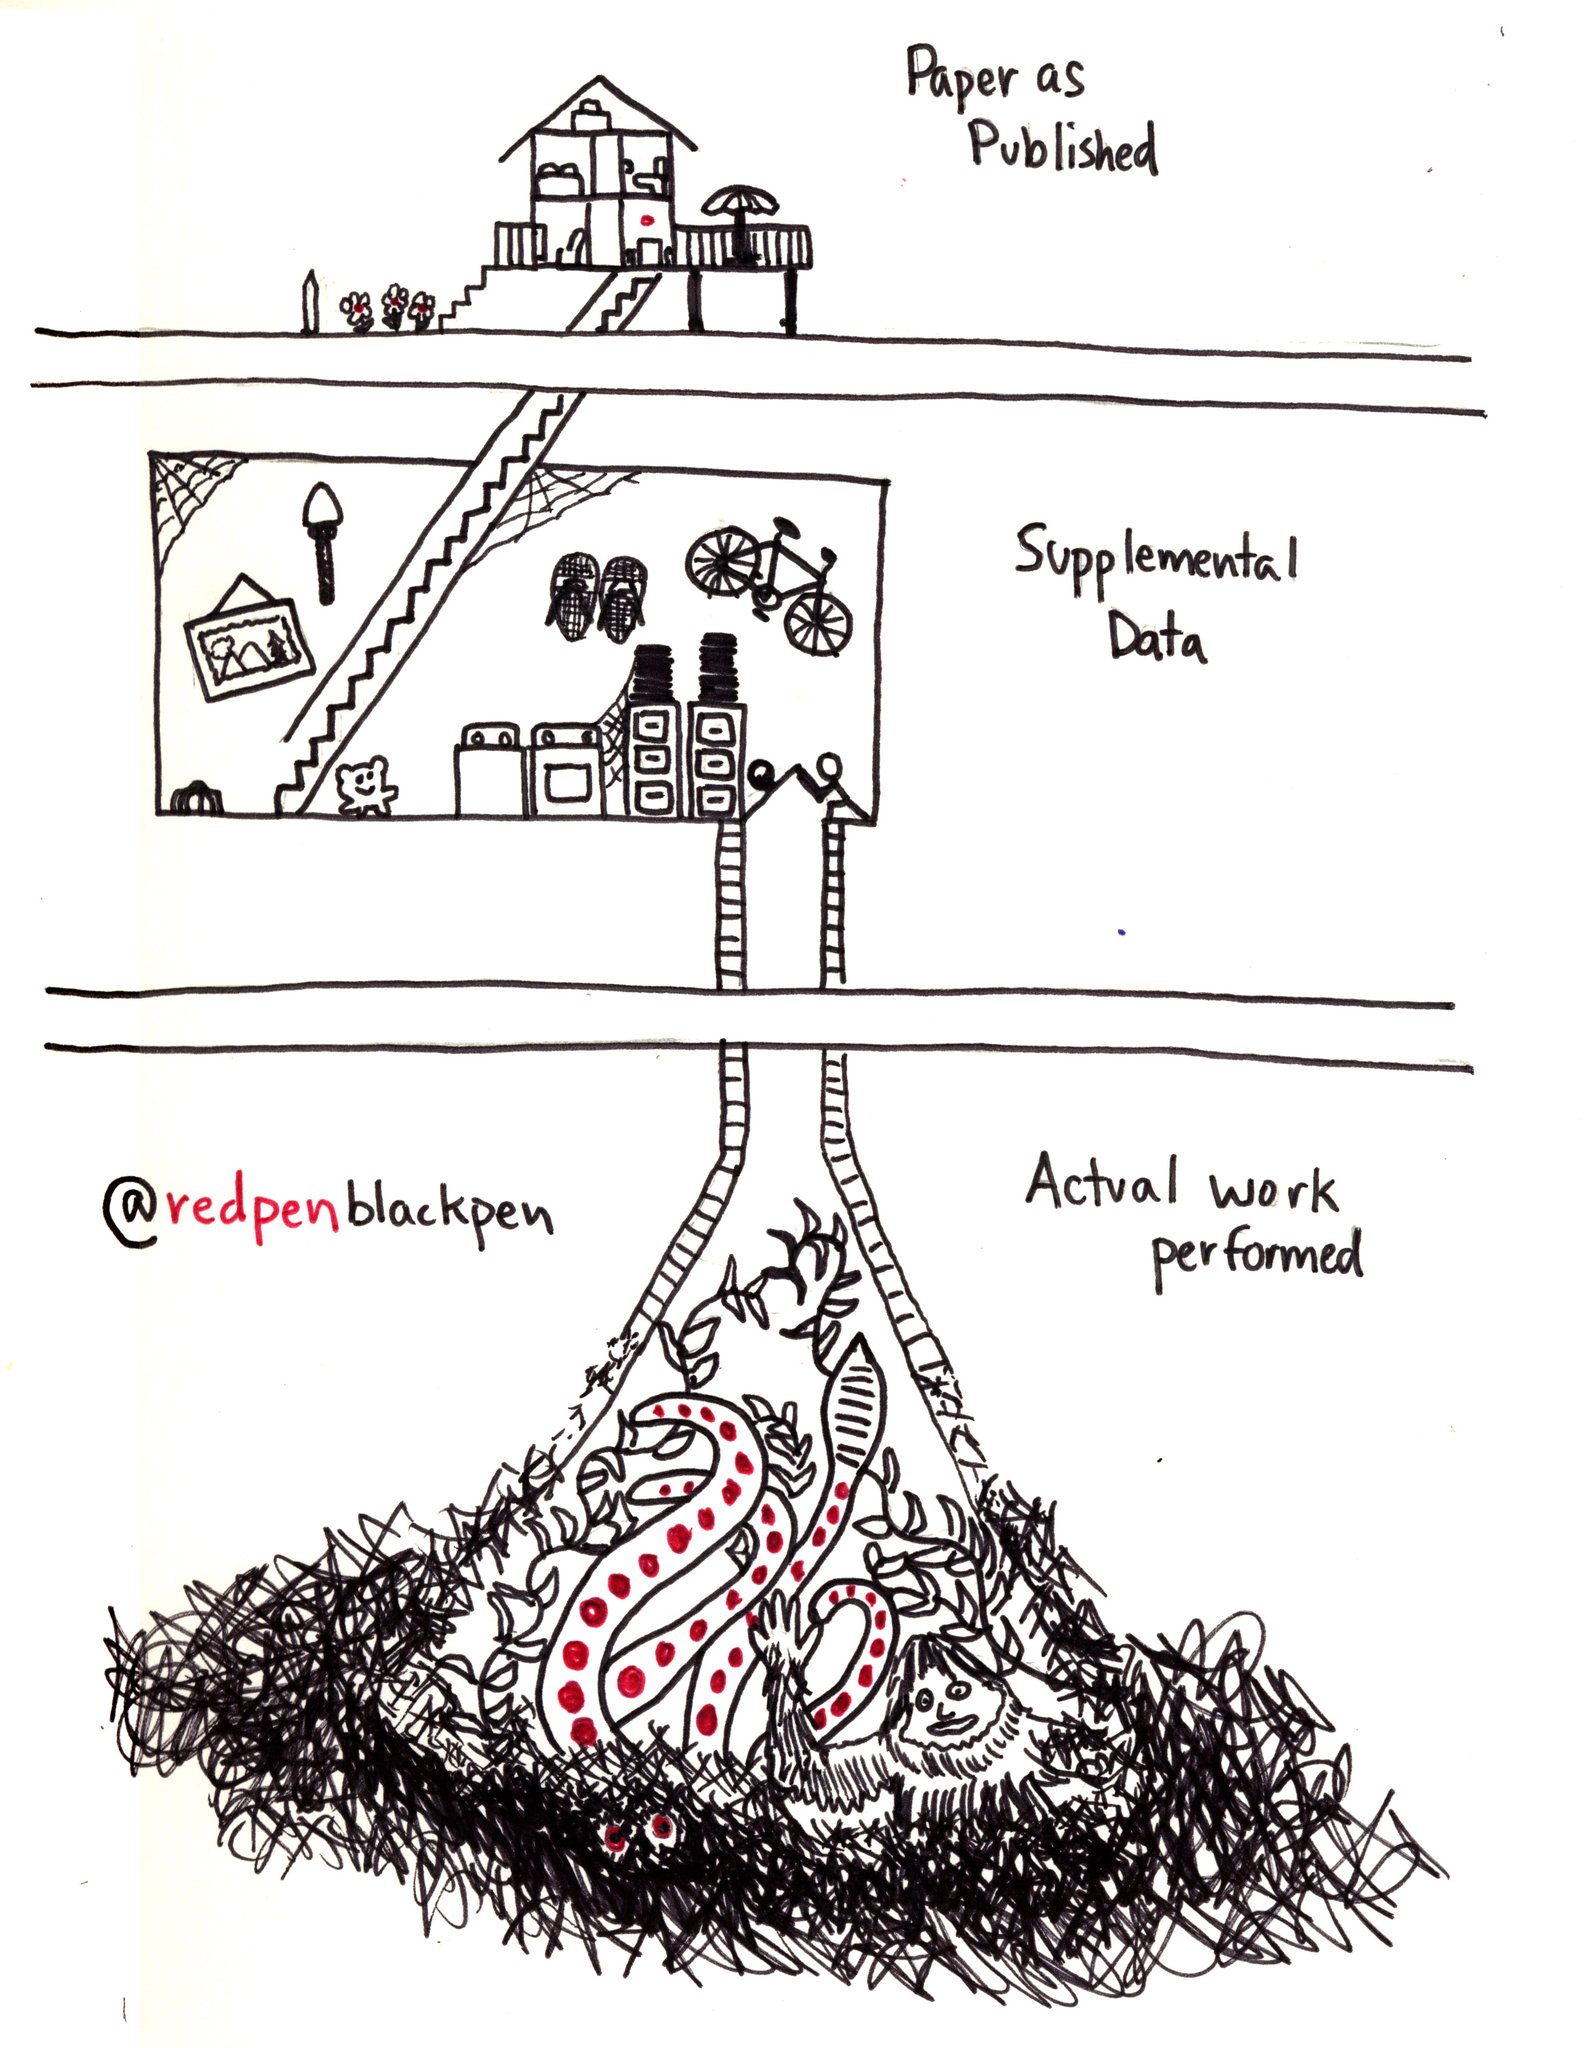 Paper as
Published
Supplemental
Data
@redpenblackpen
Actual work
performed